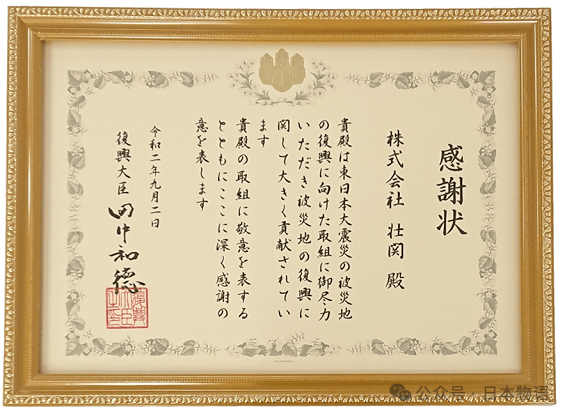 感謝状
株式会社 壮関 殿
貴殿は東日本大震災の被災地
の復興に向けた取組に御尽力
いただき被災地の復興に
関して大きく貢献されてい
ます
貴殿の取組に敬意を表する
とともにここに深く感謝の
意を表します
令和二年九月二日
復興大臣 田中和徳
公众号·日本物语